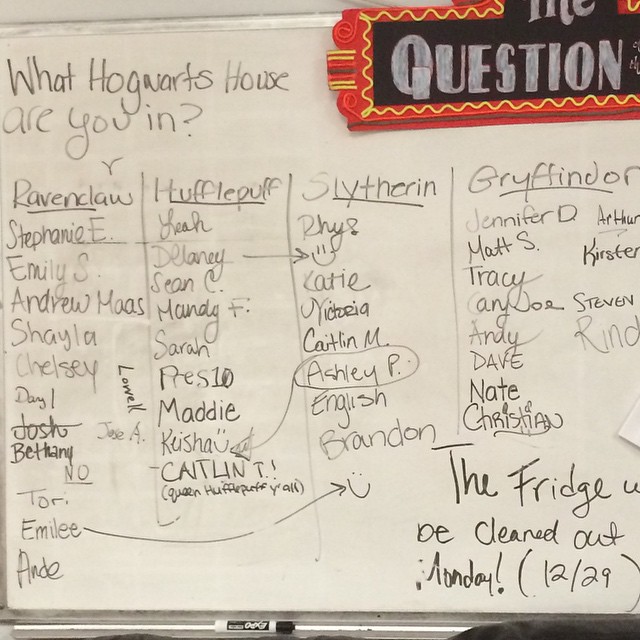 The
QUESTION
What Hogwarts House
are you in?
Ravenclaw
Stephanie E.
Emily S.
Andrew Maas
Shayla
Chelsey
Daryl
Lowell
Josh
Jose A.
Bethany
NO
Tori
Emilee
Ande
Hufflepuff
Leah
Delaney
Sean C.
Mandy F.
Sarah
Maddie
Kiisha
CAITLIN T.!
(queen Hufflepuff y'all)
Slytherin
Rhys
Katie
Victoria
Caitlin M.
Ashley P.
English
Brandon
Gryffindor
Jennifer D
Arthur
Matt S.
Kirsten
Tracy
STEVEN
Andy
Rind
DAVE
Nate
CHRISTIAN
The Fridge w
be cleaned out
Monday! (12/29)
EXPO